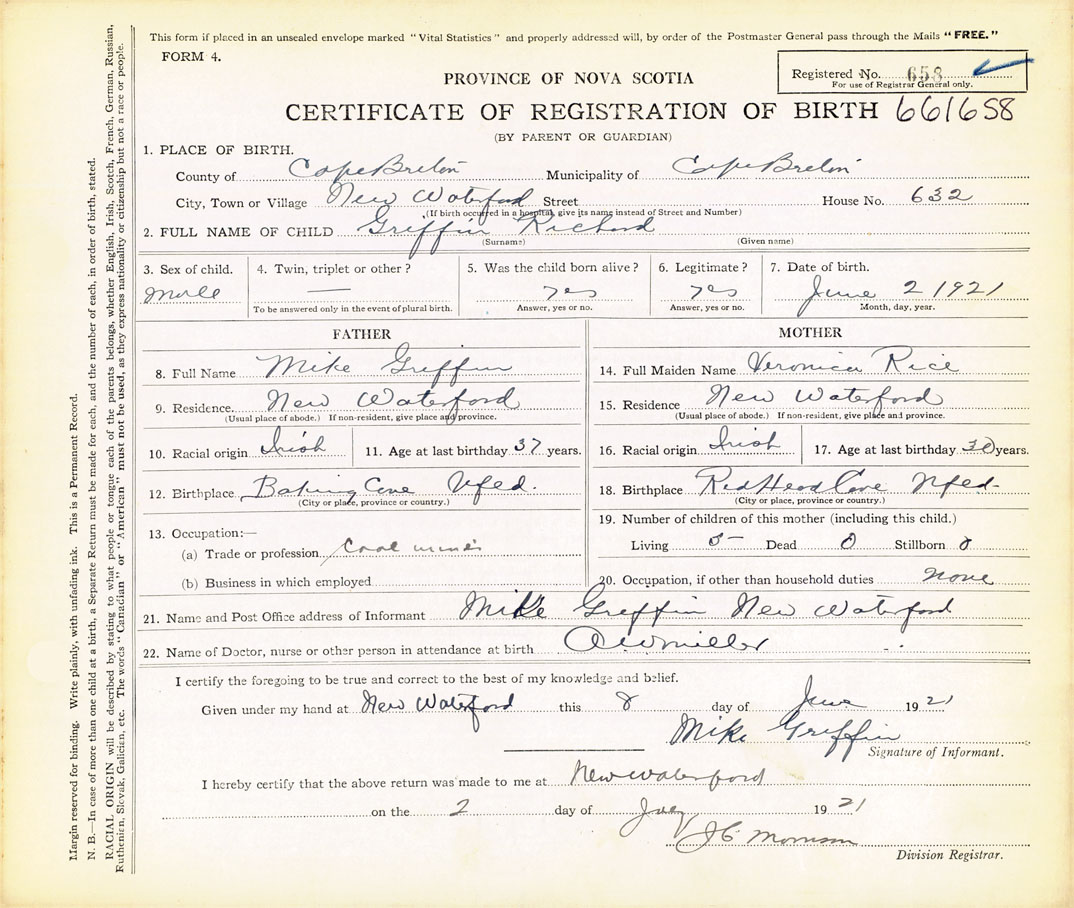 This form if placed in an unsealed envelope marked "Vital Statistics" and properly addressed will, by order of the Postmaster General pass through the Mails "FREE."
FORM 4.
Registered No. 658
For use of Registrar General only.
PROVINCE OF NOVA SCOTIA
CERTIFICATE OF REGISTRATION OF BIRTH 661658
(BY PARENT OR GUARDIAN)
1. PLACE OF BIRTH.
County of Cape Breton Municipality of Cape Breton
City, Town or Village New Waterford Street House No. 632
(If birth occurred in a hospital, give its name instead of Street and Number)
2. FULL NAME OF CHILD Griffin Richard
(Surname) (Given name)
3. Sex of child. 4. Twin, triplet or other? 5. Was the child born alive? 6. Legitimate? 7. Date of birth.
Male — yes yes June 2 1921
To be answered only in the event of plural birth. Answer, yes or no. Answer, yes or no. Month, day, year.
FATHER
8. Full Name Mike Griffin
9. Residence. New Waterford
(Usual place of abode.) If non-resident, give place and province.
10. Racial origin Irish 11. Age at last birthday 37 years.
12. Birthplace Cove Nfld.
(City or place, province or country.)
13. Occupation:—
(a) Trade or profession Coal miner
(b) Business in which employed
MOTHER
14. Full Maiden Name Veronica Rice
15. Residence New Waterford
(Usual place of abode.) If non-resident, give place and province.
16. Racial origin Irish 17. Age at last birthday 30 years.
18. Birthplace Red Head Cove Nfld-
(City or place, province or country.)
19. Number of children of this mother (including this child.)
Living 5- Dead 0 Stillborn 0
20. Occupation, if other than household duties none
21. Name and Post Office address of Informant Mike Griffin New Waterford
22. Name of Doctor, nurse or other person in attendance at birth
I certify the foregoing to be true and correct to the best of my knowledge and belief.
Given under my hand at New Waterford this 8 day of June 1921
Mike Griffin
Signature of Informant.
I hereby certify that the above return was made to me at New Waterford
on the 2 day of July 1921
J C Morrison
Division Registrar.
Margin reserved for binding. Write plainly, with unfading ink. This is a Permanent Record.
N. B.—In case of more than one child at a birth, a Separate Return must be made for each, and the number of each, in order of birth, stated.
RACIAL ORIGIN will be described by stating to what people or tongue each of the parents belongs, whether English, Irish, Scotch, French, German, Russian,
Ruthenian, Slovak, Galicien, etc. The words "Canadian" or "American" must not be used, as they express nationality or citizenship but not a race or people.